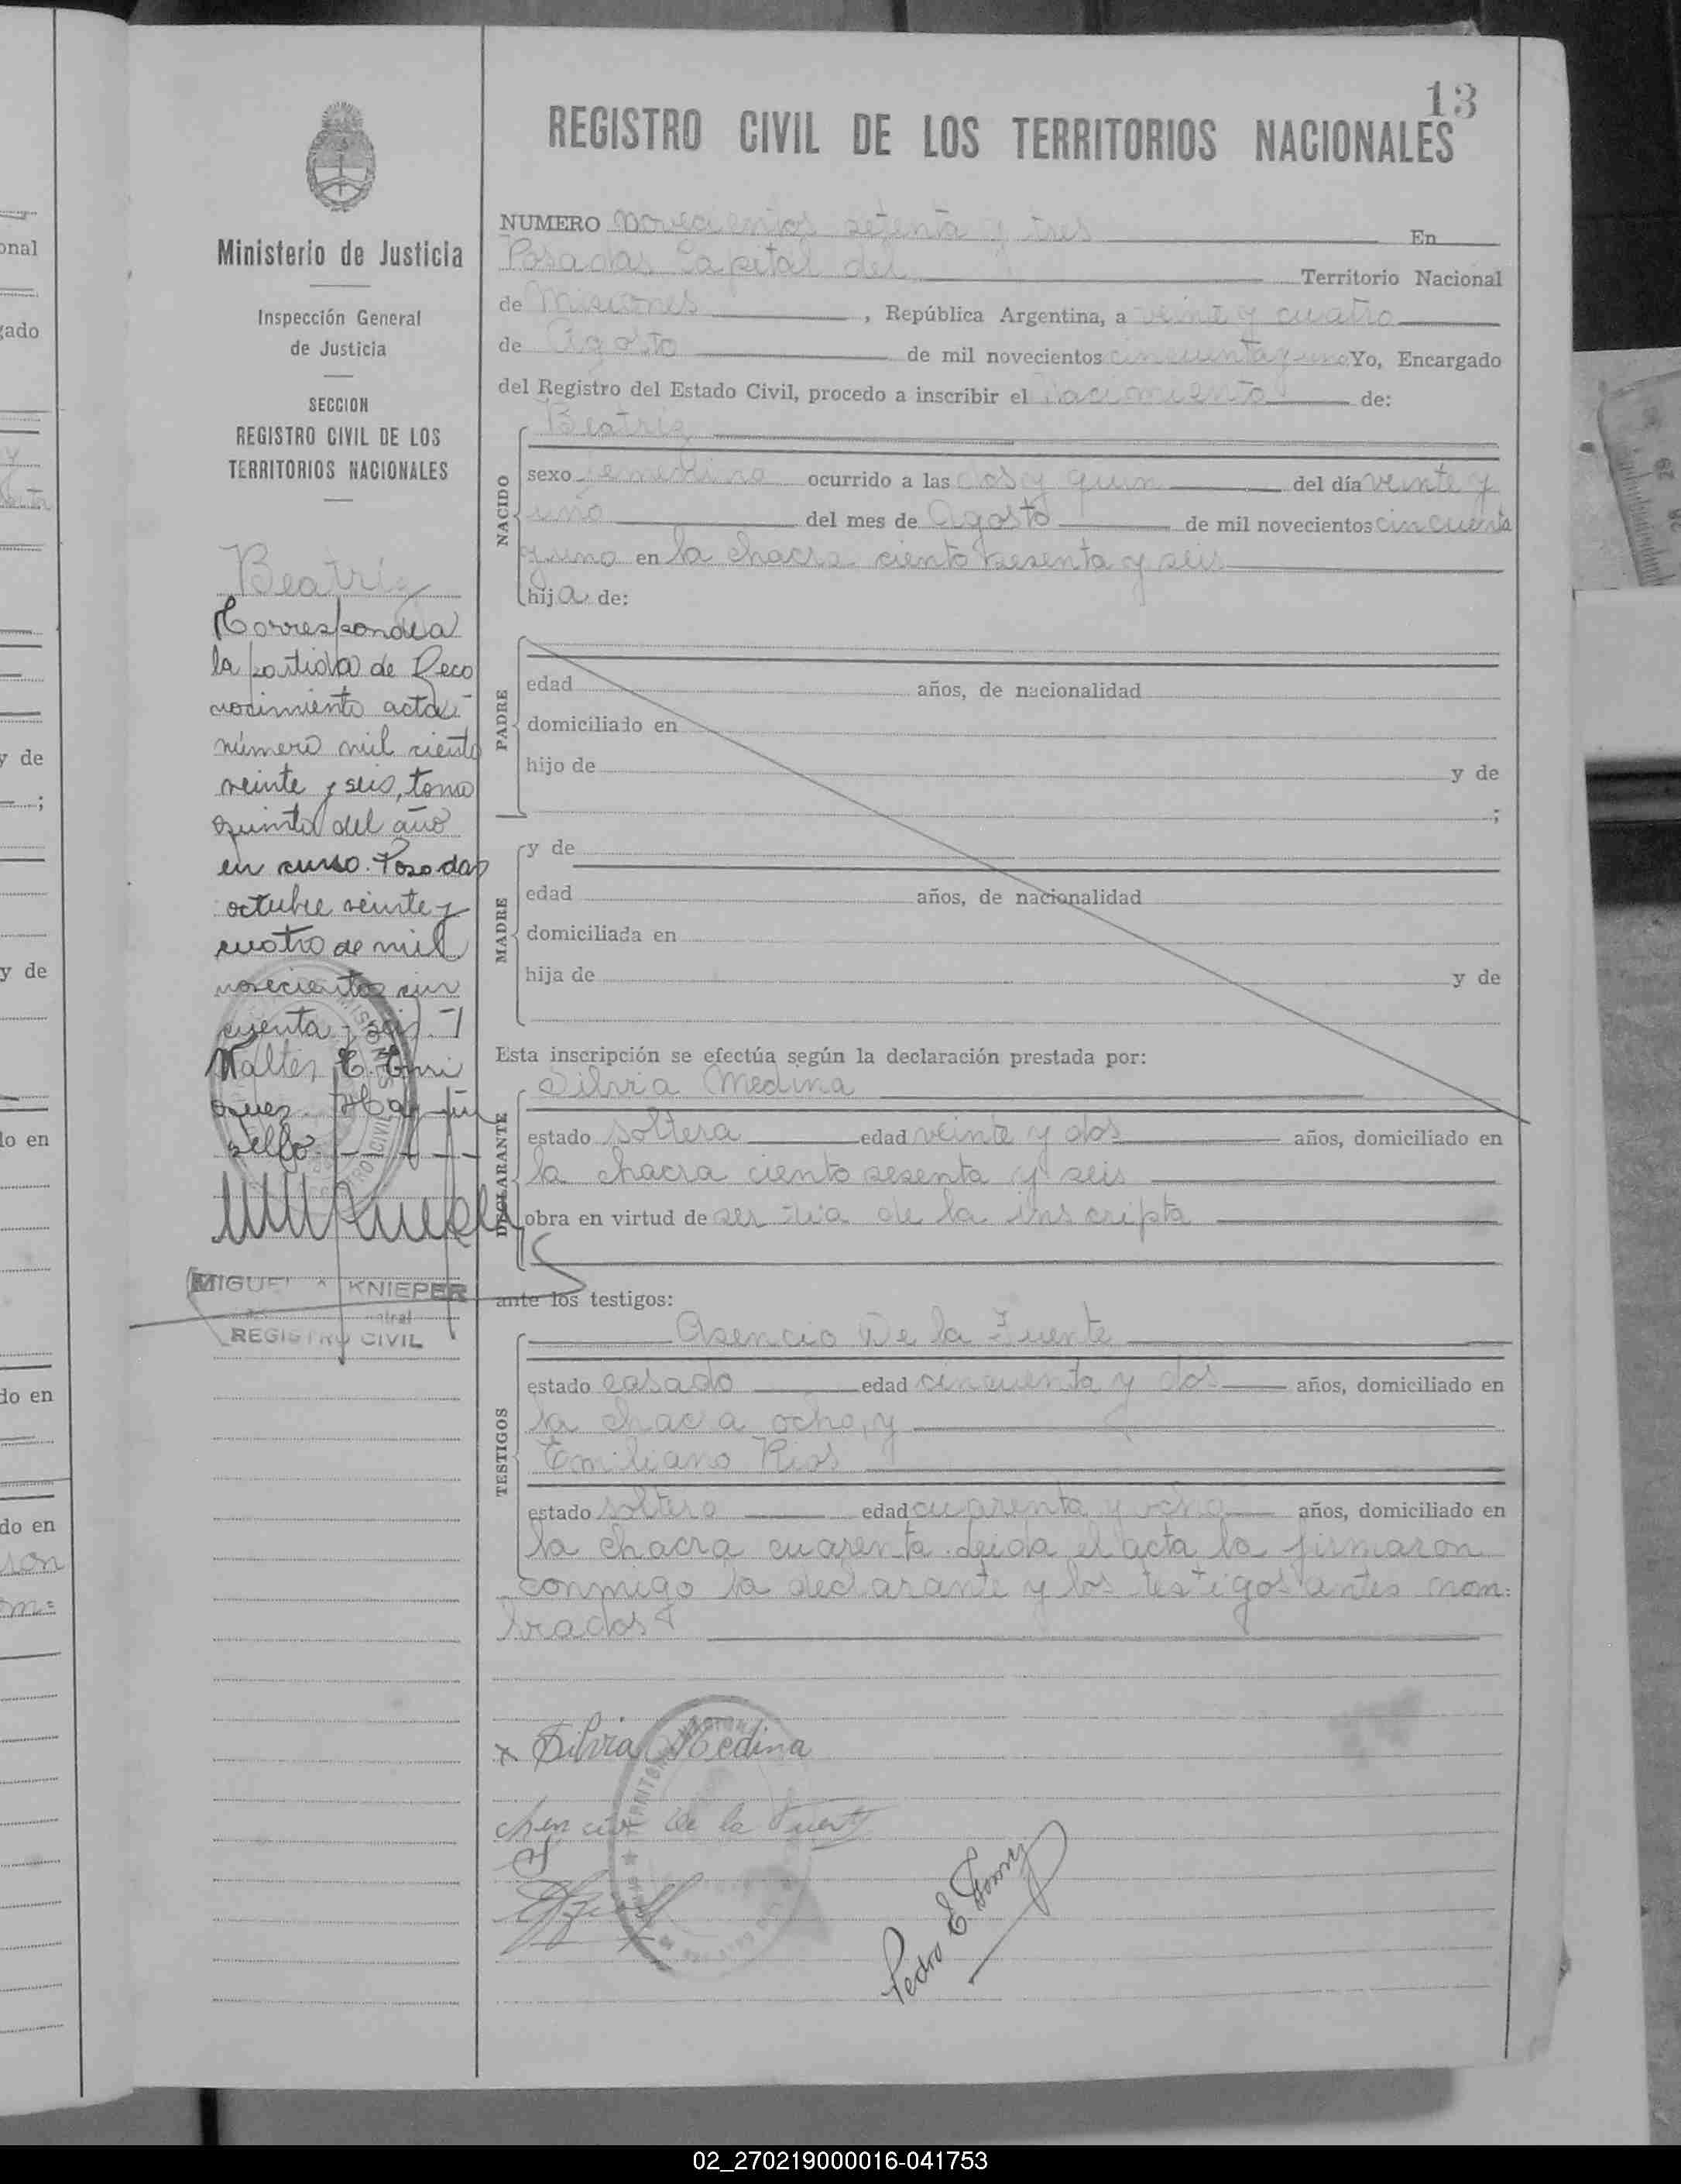 13
REGISTRO CIVIL DE LOS TERRITORIOS NACIONALES
Ministerio de Justicia
Inspección General
de Justicia
SECCION
REGISTRO CIVIL DE LOS
TERRITORIOS NACIONALES
Beatriz
Corresponde a
la partida de Reco
nocimiento acta
número mil ciento
veinte y seis, tomo
quinto del año
en curso. Posadas
octubre veinte y
cuatro de mil
novecientos cin
cuenta y seis.
Walter E. Enri
quez. Hay un
sello.
MIGUEL A KNIEPER
REGISTRO CIVIL
NUMERO novecientos setenta y tres En
Posadas Capital del Territorio Nacional
de Misiones, República Argentina, a veinte y cuatro
de Agosto de mil novecientos cincuenta y uno Yo, Encargado
del Registro del Estado Civil, procedo a inscribir el Nacimiento de:
NACIDO
Beatriz
sexo femenino ocurrido a las dos y quin del día veinte y
uno del mes de Agosto de mil novecientos cincuenta
y uno en la chacra ciento sesenta y seis
hija de:
PADRE
edad años, de nacionalidad
domiciliado en
hijo de y de
;
MADRE
y de
edad años, de nacionalidad
domiciliada en
hija de y de
Esta inscripción se efectúa según la declaración prestada por:
DECLARANTE
Silvia Medina
estado soltera edad veinte y dos años, domiciliado en
la chacra ciento sesenta y seis
obra en virtud de ser tia de la inscripta
ante los testigos:
TESTIGOS
Asencio De la Fuente
estado casado edad cincuenta y dos años, domiciliado en
la chacra ocho, y
Emiliano Rios
estado soltero edad cuarenta y ocho años, domiciliado en
la chacra cuarenta. Leida el acta la firmaron
conmigo la declarante y los testigos antes nom=
brados
x Silvia Medina
de la Fuente
Pedro E.
onal
gado
y de
;
y de
do en
do en
do en
02_270219000016-041753